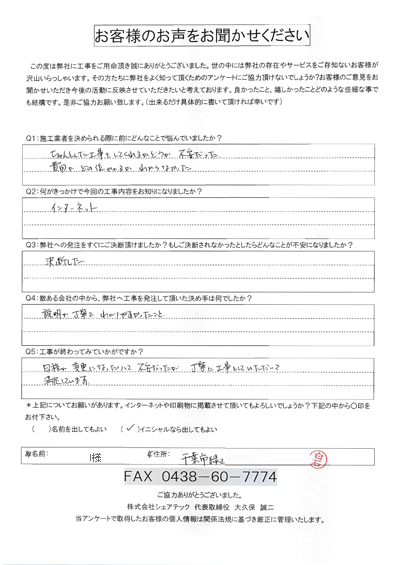 お客様のお声をお聞かせください
この度は弊社に工事をご用命頂き誠にありがとうございました。世の中には弊社の存在やサービスをご存知ないお客様が
沢山いらっしゃいます。その方たちに弊社をよく知って頂くためのアンケートにご協力頂けないでしょうか?お客様のご意見をお
聞かせいただき今後の活動に反映させていただきたいと考えております。良かったこと、嬉しかったことどのような些細な事で
も結構です。是非ご協力お願い致します。(出来るだけ具体的に書いて頂ければ幸いです)
Q1:施工業者を決められる際に前にどんなことで悩んでいましたか?
ちゃんとした工事をしてくれるかどうか 不安だった
費用が どの位かかるか わからなかった
Q2:何がきっかけで今回の工事内容をお知りになりましたか?
インターネット
Q3:弊社への発注をすぐにご決断頂けましたか?もしご決断されなかったとしたらどんなことが不安になりましたか?
決断した
Q4:数ある会社の中から、弊社へ工事を発注して頂いた決め手は何でしたか?
説明が 丁寧で わかりやすかったこと
Q5:工事が終わってみていかがですか?
日程が 変更になったりして 不安だったが 丁寧に工事をしていただいて
満足しています
*上記についてお願いがあります。インターネットや印刷物に掲載させて頂いてもよろしいでしょうか?下記の中から○印を
お付下さい。
( )名前を出してもよい (✓)イニシャルなら出してもよい
お名前: I様 ご住所: 千葉市緑区
FAX 0438-60-7774
ご協力ありがとうございました。
株式会社シェアテック 代表取締役 大久保 誠二
当アンケートで取得したお客様の個人情報は関係法規に基づき厳正に管理いたします。